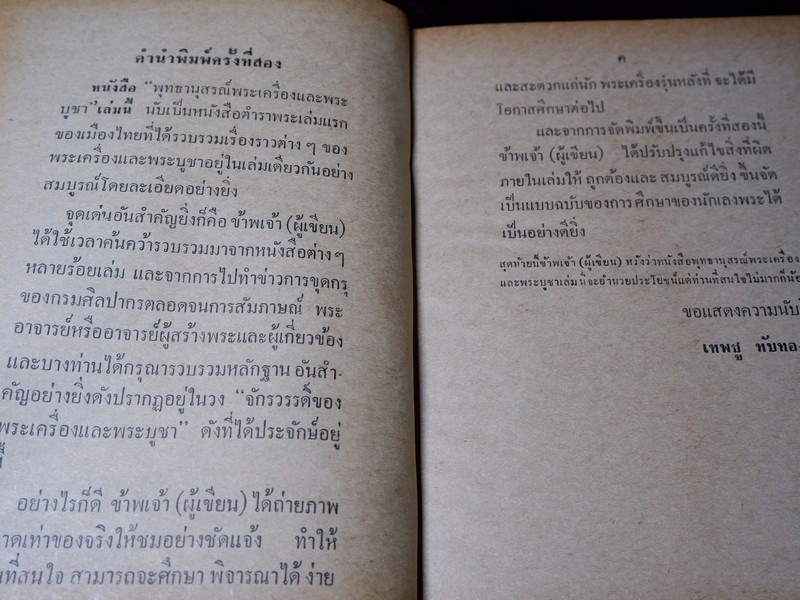 คำนำพิมพ์ครั้งที่สอง
หนังสือ "พุทธานุสรณ์พระเครื่องและพระ
บูชา"เล่มนี้ นับเป็นหนังสือตำราพระเล่มแรก
ของเมืองไทยที่ได้รวบรวมเรื่องราวต่าง ๆ ของ
พระเครื่องและพระบูชาอยู่ในเล่มเดียวกันอย่าง
สมบูรณ์โดยละเอียดอย่างยิ่ง
จุดเด่นอันสำคัญยิ่งก็คือ ข้าพเจ้า (ผู้เขียน)
ได้ใช้เวลาค้นคว้ารวบรวมมาจากหนังสือต่างๆ
หลายร้อยเล่ม และจากการไปทำข่าวการขุดกรุ
ของกรมศิลปากรตลอดจนการสัมภาษณ์ พระ
อาจารย์หรืออาจารย์ผู้สร้างพระและผู้เกี่ยวข้อง
และบางท่านได้กรุณารวบรวมหลักฐาน อันสำ-
คัญอย่างยิ่งดังปรากฏอยู่ในวง "จักรวรรดิ์ของ
พระเครื่องและพระบูชา" ดังที่ได้ประจักษ์อยู่
อย่างไรก็ดี ข้าพเจ้า (ผู้เขียน) ได้ถ่ายภาพ
าดเท่าของจริงให้ชมอย่างชัดแจ้ง ทำให้
ที่สนใจ สามารถจะศึกษา พิจารณาได้ ง่าย
ค
และสะดวกแก่นัก พระเครื่องรุ่นหลังที่ จะได้มี
โอกาสศึกษาต่อไป
และจากการจัดพิมพ์ขึ้นเป็นครั้งที่สองนี้
ข้าพเจ้า (ผู้เขียน) ได้ปรับปรุงแก้ไขสิ่งที่ผิด
ภายในเล่มให้ ถูกต้องและ สมบูรณ์ดียิ่ง ขึ้นจัด
เป็นแบบฉบับของการศึกษาของนักเลงพระได้
เป็นอย่างดียิ่ง
สุดท้ายนี้ข้าพเจ้า (ผู้เขียน) หวังว่าหนังสือพุทธานุสรณ์พระเครื่อง
และพระบูชาเล่มนี้จะอำนวยประโยชน์แด่ท่านที่สนใจไม่มากก็น้อย
ขอแสดงความนับ
เทพชู ทับทอง